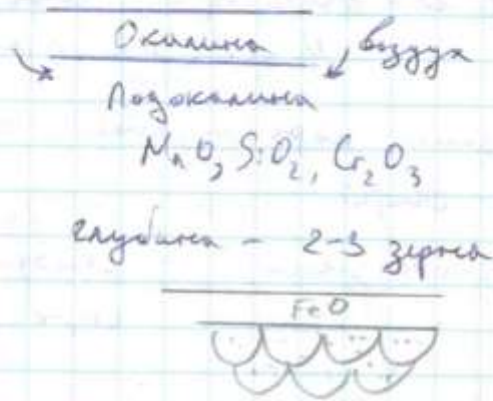 Окалина
воздух
Подокалина
MnO, SiO₂, Cr₂O₃
глубина - 2-3 зерна
FeO